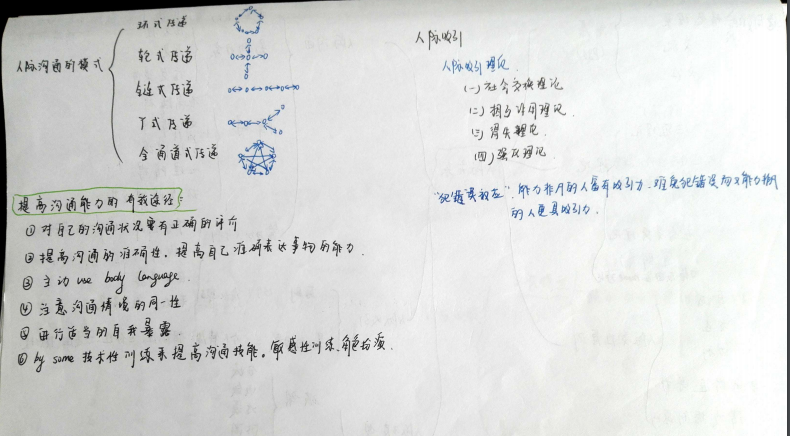 人际沟通的模式
环式传递
轮式传递
链式传递
丫式传递
全通道式传递
提高沟通能力的有效途径:
① 对自己的沟通状况要有正确的评价
② 提高沟通的准确性,提高自己准确表达事物的能力.
③ 主动 use body language.
④ 注意沟通情境的同一性
⑤ 进行适当的自我暴露.
⑥ by some 技术性训练来提高沟通技能。敏感性训练、角色扮演.
人际吸引
人际吸引理论
(一) 社会交换理论
(二) 相互作用理论.
(三) 得失理论.
(四) 强化理论.
"犯错误效应". 能力非凡的人富有吸引力. 难免犯错误而又能力非凡
的人更具吸引力.